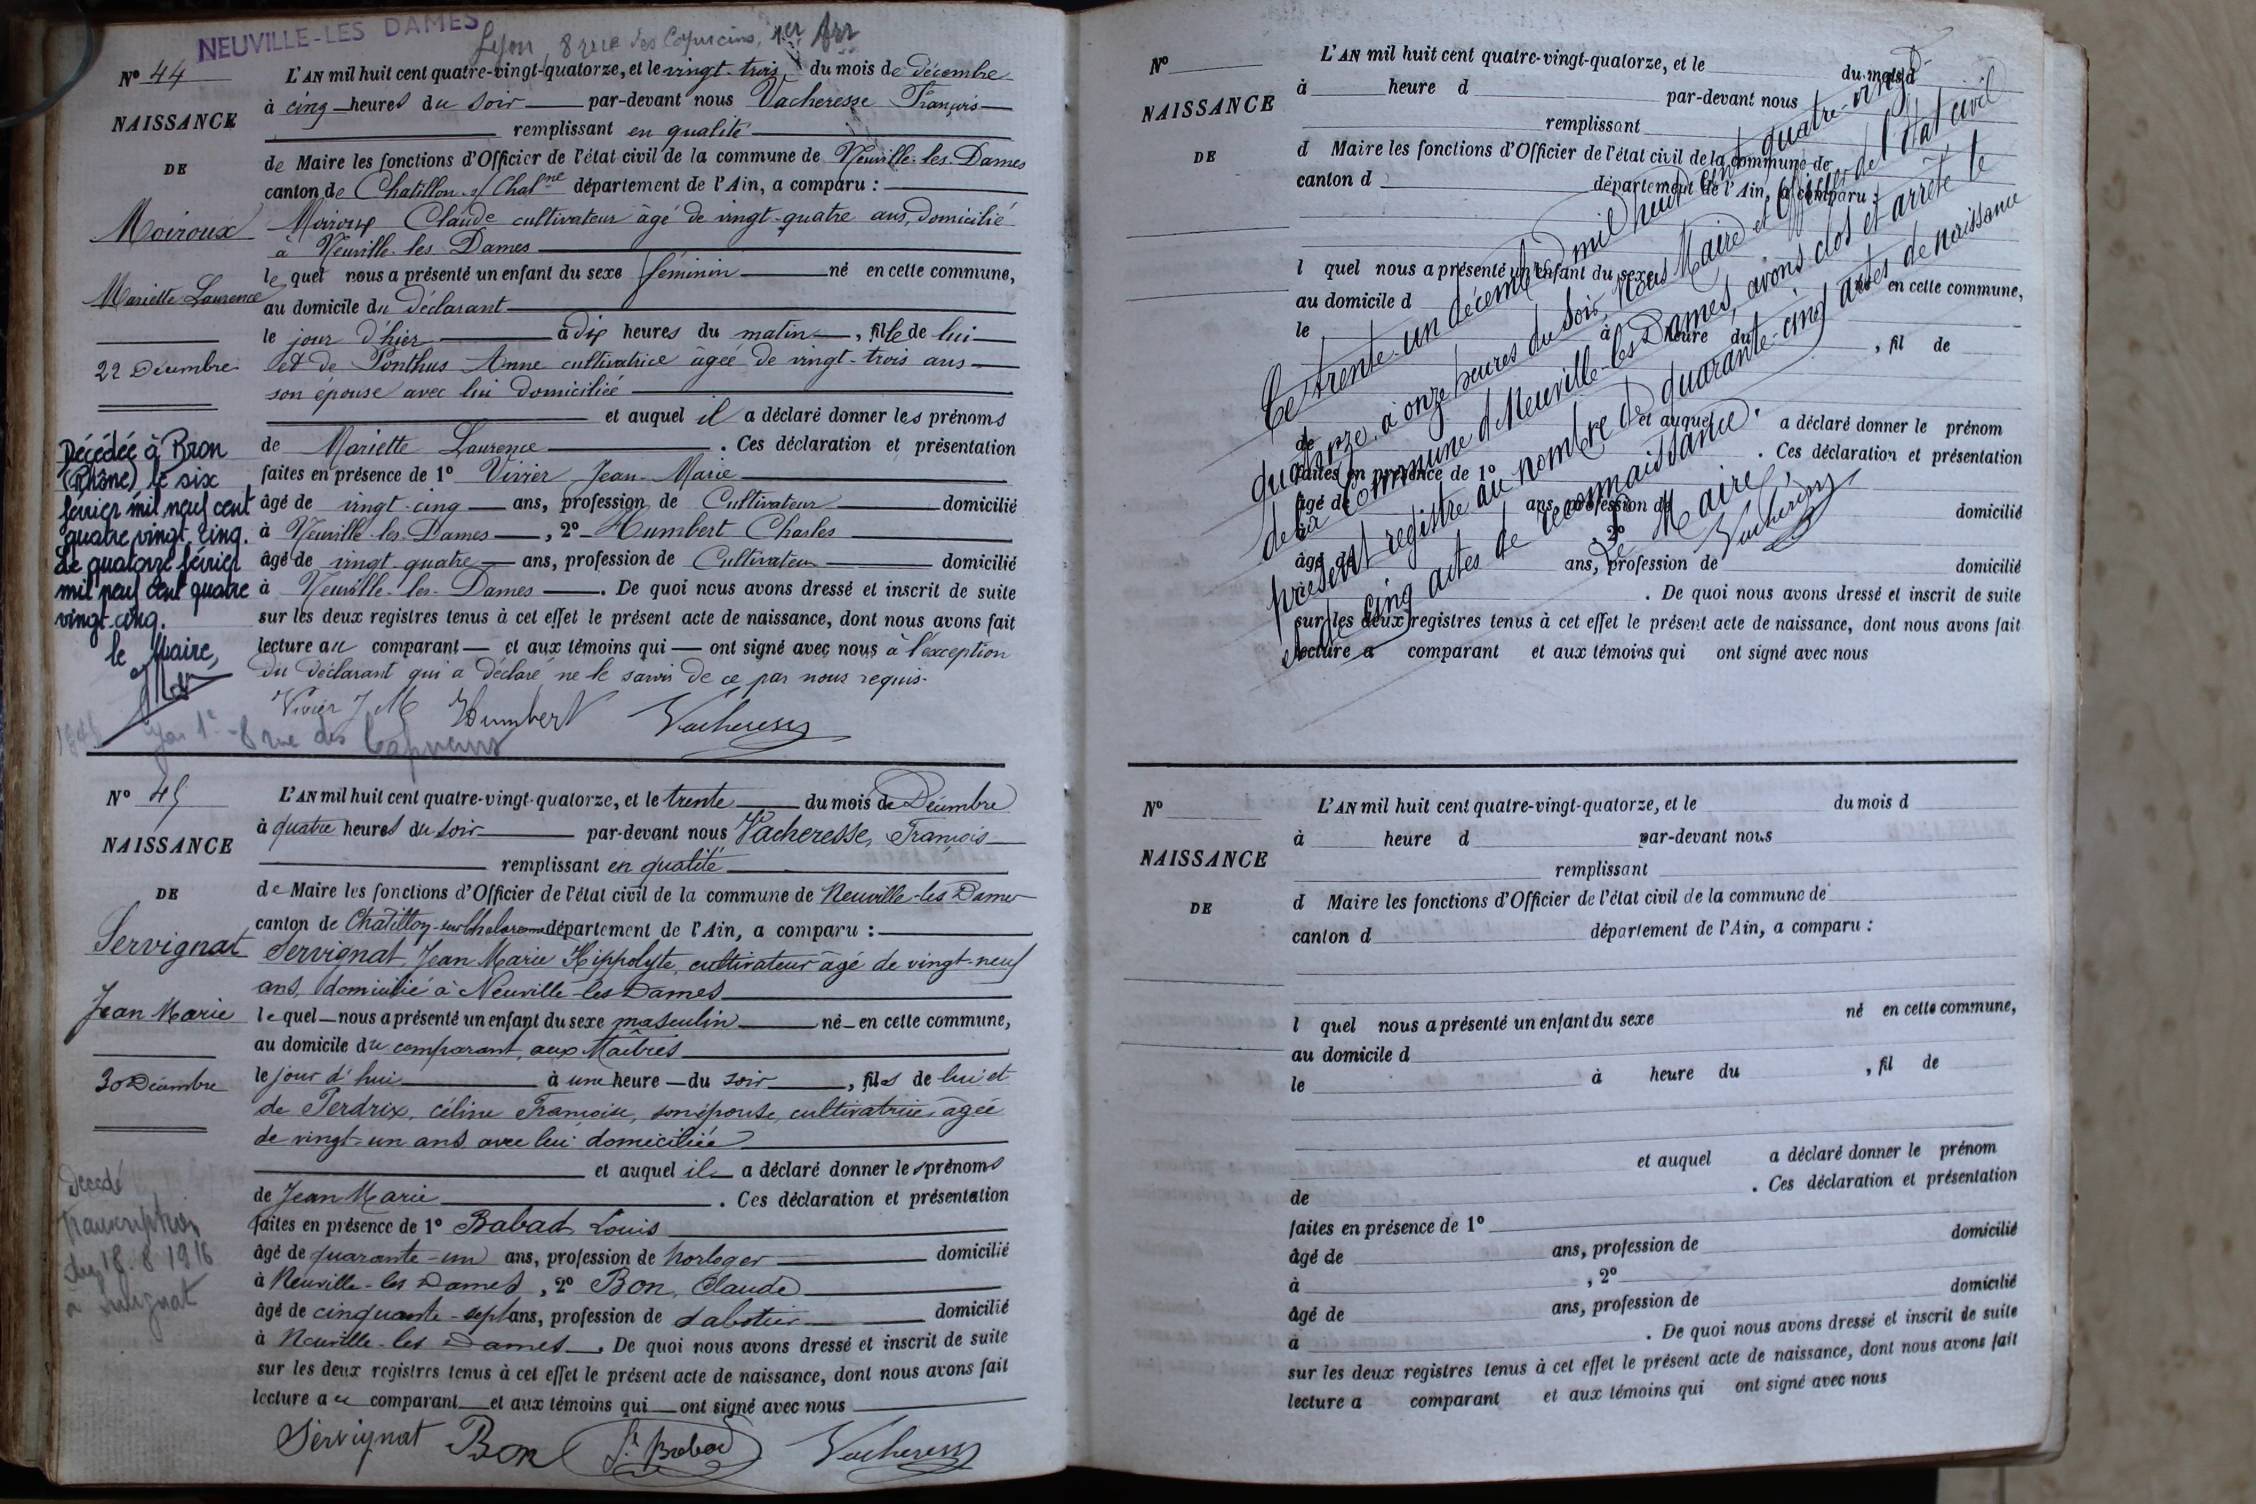 NEUVILLE-LES DAMES
Lyon, 8 rue des Capucins, 1er Arr
Nº 44
NAISSANCE
DE
Moiroux
Mariette Laurence
22 Décembre
Décédée à Bron
(Rhône) le six
février mil neuf cent
quatre vingt cinq.
Le quatorze février
mil neuf cent quatre
vingt-cinq.
le Maire,
L'AN mil huit cent quatre-vingt-quatorze, et le vingt trois du mois de décembre
à cinq heures du soir par-devant nous Vacheresse François
remplissant en qualité
de Maire les fonctions d'Officier de l'état civil de la commune de Neuville-les-Dames
canton de Chatillon s/ Chalne département de l'Ain, a comparu :
Moiroux Claude cultivateur âgé de vingt-quatre ans, domicilié
à Neuville-les Dames
le quel nous a présenté un enfant du sexe féminin né en cette commune,
au domicile du déclarant
le jour d'hier à dix heures du matin, fille de lui
et de Ponthus Anne cultivatrice âgée de vingt-trois ans
son épouse avec lui domiciliée
et auquel il a déclaré donner les prénoms
de Mariette Laurence. Ces déclaration et présentation
faites en présence de 1º Vivier Jean-Marie
âgé de vingt-cinq ans, profession de Cultivateur domicilié
à Neuville-les-Dames, 2º Humbert Charles
âgé de vingt-quatre ans, profession de Cultivateur domicilié
à Neuville-les-Dames. De quoi nous avons dressé et inscrit de suite
sur les deux registres tenus à cet effet le présent acte de naissance, dont nous avons fait
lecture au comparant et aux témoins qui ont signé avec nous à l'exception
du déclarant qui a déclaré ne le savoir de ce par nous requis.
Vivier J M Humbert Vacheresse
Lyon 1er - 8 rue des Capucins
Nº 45
NAISSANCE
DE
Servignat
Jean Marie
30 Décembre
Décédé
Transcription
du 18-8 1916
à
L'AN mil huit cent quatre-vingt-quatorze, et le trente du mois de Décembre
à quatre heures du soir par-devant nous Vacheresse, François
remplissant en qualité
de Maire les fonctions d'Officier de l'état civil de la commune de Neuville-les-Dames
canton de Chatillon-sur-Chalaronne département de l'Ain, a comparu :
Servignat, Jean Marie Hippolyte, cultivateur âgé de vingt-neuf
ans, domicilié à Neuville-les-Dames
le quel nous a présenté un enfant du sexe masculin né en cette commune,
au domicile du comparant, aux
le jour d'hui à une heure du soir, fils de lui et
de Perdrix, céline Françoise, son épouse, cultivatrice, âgée
de vingt-un ans avec lui domiciliée
et auquel il a déclaré donner les prénoms
de Jean Marie. Ces déclaration et présentation
faites en présence de 1º Babad Louis
âgé de quarante-un ans, profession de horloger domicilié
à Neuville-les Dames, 2º Bon, Claude
âgé de cinquante-sept ans, profession de sabotier domicilié
à Neuville-les Dames. De quoi nous avons dressé et inscrit de suite
sur les deux registres tenus à cet effet le présent acte de naissance, dont nous avons fait
lecture au comparant et aux témoins qui ont signé avec nous
Servignat Bon L. Babad Vacheresse
Nº
NAISSANCE
DE
L'AN mil huit cent quatre-vingt-quatorze, et le du mois d
à heure d par-devant nous
remplissant
d Maire les fonctions d'Officier de l'état civil de la commune de
canton d département de l'Ain, a comparu :
l quel nous a présenté un enfant du sexe né en cette commune,
au domicile d
le à heure du , fil de
et auquel a déclaré donner le prénom
de . Ces déclaration et présentation
faites en présence de 1º
âgé de ans, profession de domicilié
à , 2º
âgé de ans, profession de domicilié
à . De quoi nous avons dressé et inscrit de suite
sur les deux registres tenus à cet effet le présent acte de naissance, dont nous avons fait
lecture a comparant et aux témoins qui ont signé avec nous
Ce trente-un décembre mil huit cent quatre-vingt-
quatorze, à onze heures du soir, Nous Maire et Officier de l'état civil
de la commune de Neuville-les-Dames, avons clos et arrêté le
présent registre au nombre de quarante-cinq actes de naissance
et de cinq actes de reconnaissance.
Le Maire,
Vacheresse
Nº
NAISSANCE
DE
L'AN mil huit cent quatre-vingt-quatorze, et le du mois d
à heure d par-devant nous
remplissant
d Maire les fonctions d'Officier de l'état civil de la commune de
canton d département de l'Ain, a comparu :
l quel nous a présenté un enfant du sexe né en cette commune,
au domicile d
le à heure du , fil de
et auquel a déclaré donner le prénom
de . Ces déclaration et présentation
faites en présence de 1º
âgé de ans, profession de domicilié
à , 2º
âgé de ans, profession de domicilié
à . De quoi nous avons dressé et inscrit de suite
sur les deux registres tenus à cet effet le présent acte de naissance, dont nous avons fait
lecture a comparant et aux témoins qui ont signé avec nous